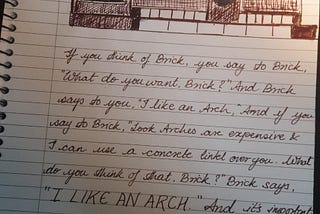 If you think of Brick, you say to Brick,
"What do you want, Brick?" And Brick
says to you, "I like an Arch, "And if you
say to Brick, "Look Arches are expensive &
I can use a concrete lintel over you. What
do you think of that. Brick?" Brick says,
"I LIKE AN ARCH." And it's important